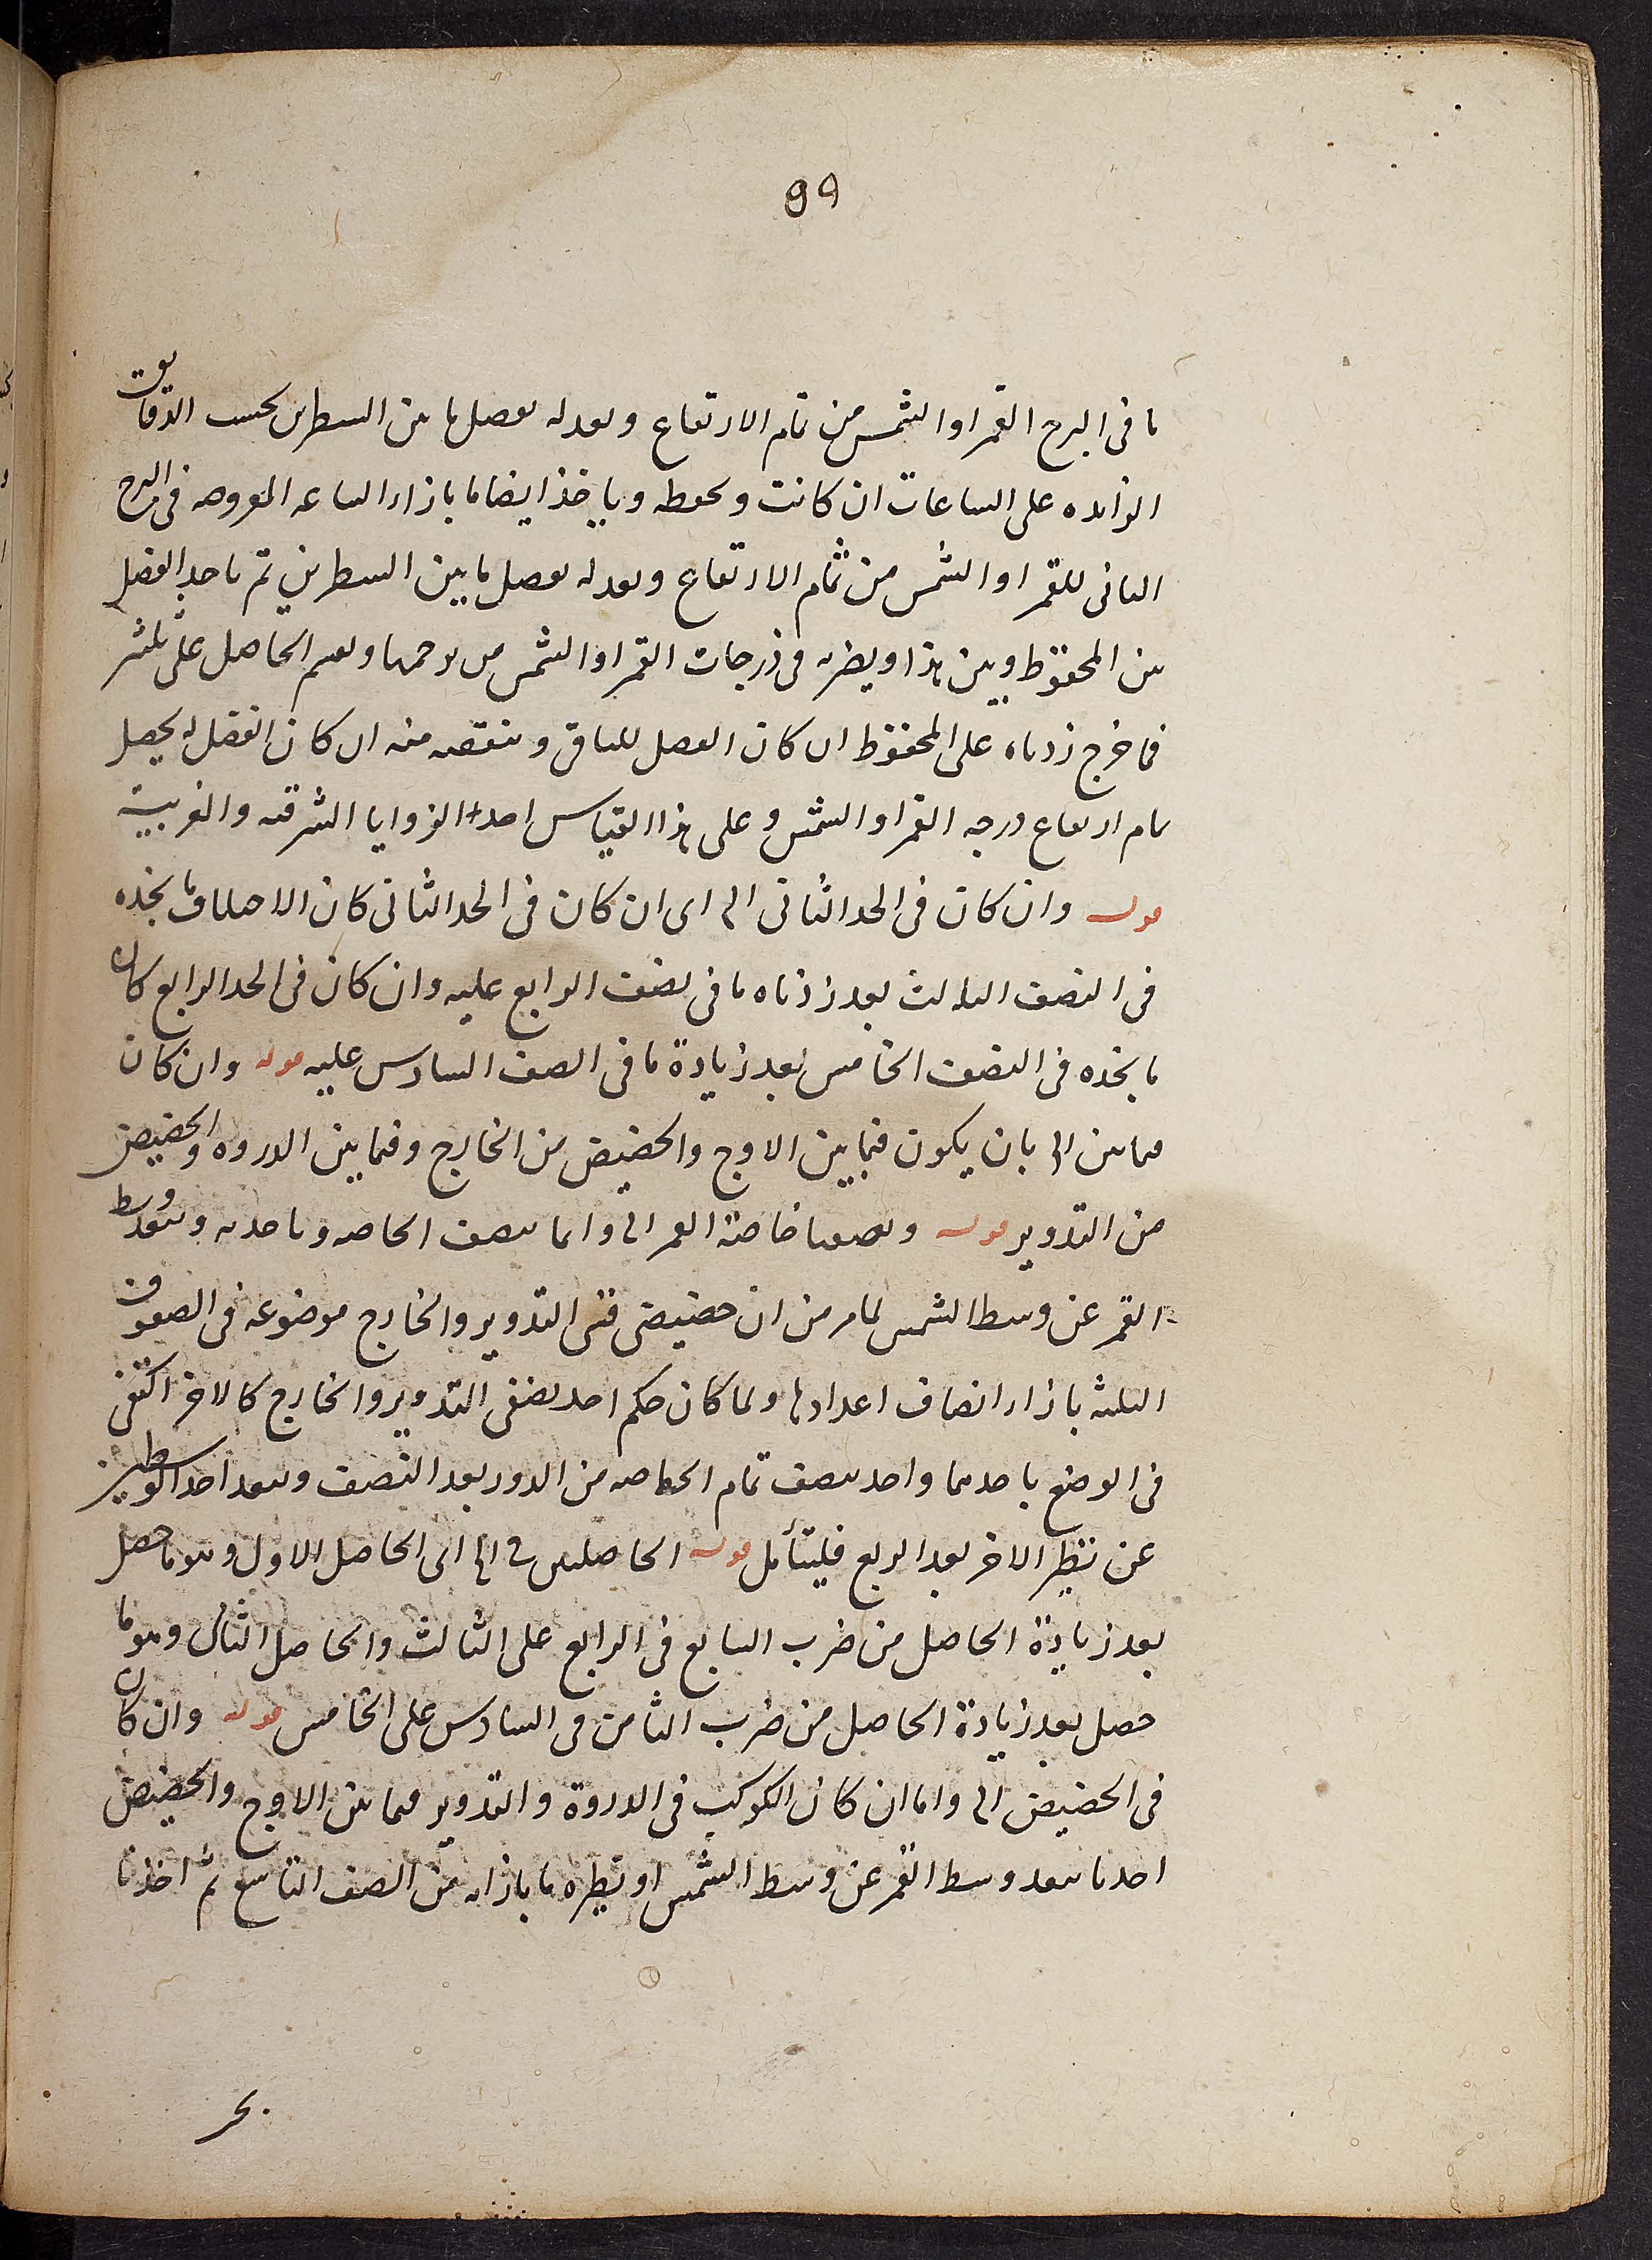 99
ما فى البرج القمر او الشمس من تمام الارتفاع ونعدله بفضل ما بين السطرين بحسب الدقايق
الزايده على الساعات ان كانت ونحفظه وياخذ ايضا ما بازاء الساعه المفروضه فى البرج
الثانى للقمر او الشمس من تمام الارتفاع ونعدله بفضل ما بين السطرين ثم ناخذ الفضل
بين المحفوظ وبين هذا ويضربه فى درجات القمر او الشمس من برجهما ونقسم الحاصل على ثلثين
فما خرج زدناه على المحفوظ ان كان الفضل للباقى وننقصه منه ان كان الفضل له يحصل
تمام ارتفاع درجه القمر او الشمس وعلى هذا القياس اخذ الزوايا الشرقيه والغربية
قوله وان كان فى الحد الثانى الخ اى ان كان فى الحد الثانى كان الاختلاف ما نجده
فى النصف الثالث بعد زدناه ما فى نصف الرابع عليه وان كان فى الحد الرابع كان
ما نجده فى النصف الخامس بعد زيادة ما فى الصف السادس عليه قوله وان كان
فيما بين الخ بان يكون فيما بين الاوج والحضيض من الخارج وفيما بين الذروه والحضيض
من التدوير قوله ونصف خاصة القمر الخ وانما نصف الخاصه وناخذه وببعد وسط
القمر عن وسط الشمس لما مر من ان حضيضى التدوير والخارج موضوعه فى الصفوف
الثلثه بازاء انصاف اعدادها ولما كان حكم احد نصفى التدوير والخارج كالاخر اكتفى
فى الوضع باحدهما واخذ نصف تمام الخاصه من الدور بعد النصف وببعد احد الوسطين
عن نظير الاخر بعد الربع فليتأمل قوله الحاصلين الخ اى الحاصل الاول وهو ما حصل
بعد زيادة الحاصل من ضرب السابع فى الرابع على الثالث والحاصل الثانى وهو ما
حصل بعد زيادة الحاصل من ضرب الثامن فى السادس على الخامس قوله وان كان
فى الحضيض الخ واما ان كان الكوكب فى الذروة والتدوير فيما بين الاوج والحضيض
اخذنا ببعد وسط القمر عن وسط الشمس او نظيره ما بازائه من الصف التاسع ثم اخذنا